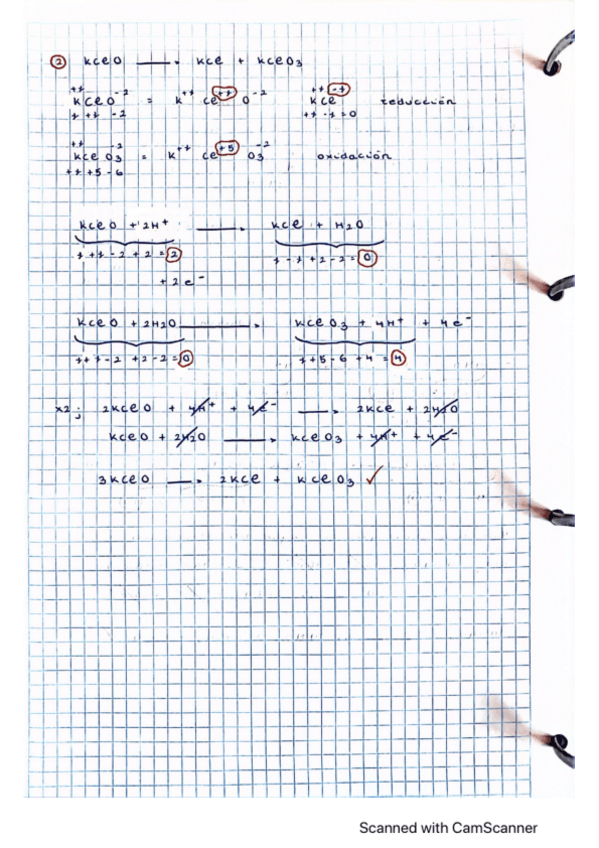 ② KClO → KCl + KClO3
+1 -2
KClO = K+1 Cl+1 O-2 KCl reducción
+1 +1 -2 +1 -1 = 0
+1 -2
KClO3 = K+1 Cl+5 O3-2 oxidación
+1 +5 -6
KClO + 2H+ → KCl + H2O
1 + 1 - 2 + 2 = 2 1 - 1 + 2 - 2 = 0
+ 2e-
KClO + 2H2O → KClO3 + 4H+ + 4e-
1 + 1 - 2 + 2 - 2 = 0 1 + 5 - 6 + 4 = 4
x2; 2KClO + 4H+ + 4e- → 2KCl + 2H2O
KClO + 2H2O → KClO3 + 4H+ + 4e-
3KClO → 2KCl + KClO3 ✓
Scanned with CamScanner